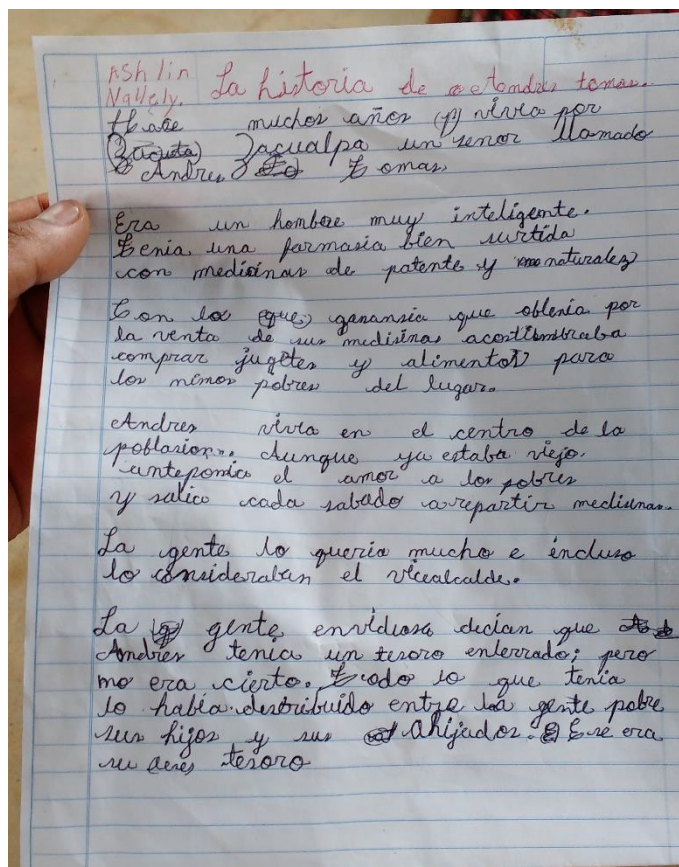 Ashlin
Nallely. La historia de Andres tomas.
Hace muchos años vivia por
Zacualpa un señor llamado
Andres Tomas
Era un hombre muy inteligente.
Tenia una farmasia bien surtida
con medisinas de patente y naturalez
Con la ganansia que obtenia por
la venta de sus medisinas acostumbraba
comprar jugetes y alimentos para
los ninos pobres del lugar.
Andres vivia en el centro de la
poblasion. Aunque ya estaba viejo.
anteponia el amor a los pobres
y salia cada sabado a repartir medisinas.
La gente lo queria mucho e incluso
lo consideraban el vicealcalde.
La gente envidiosa decian que
Andres tenia un tesoro enterrado; pero
no era cierto. Todo lo que tenia
lo habia distribuido entre la gente pobre
sus hijos y sus Ahijados. Ese era
su tesoro